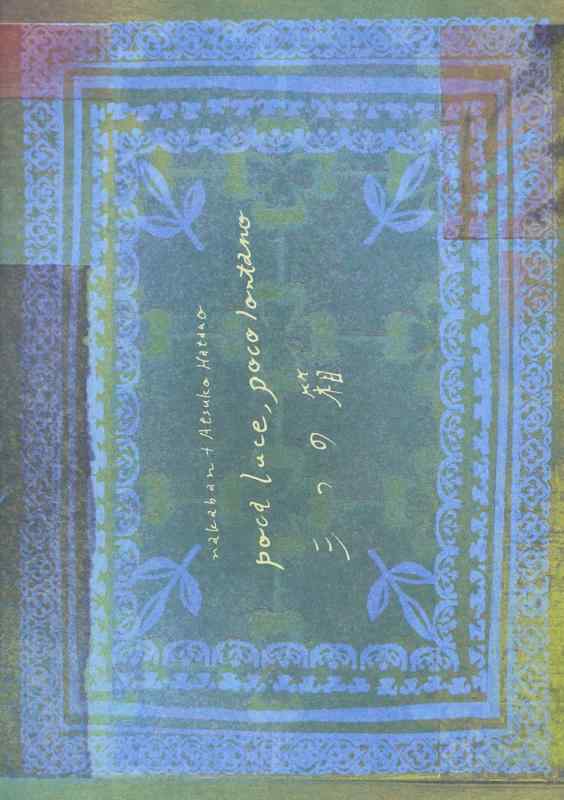 nakaban + Atsuko Hatano
poca luce, poco lontano
三つの箱